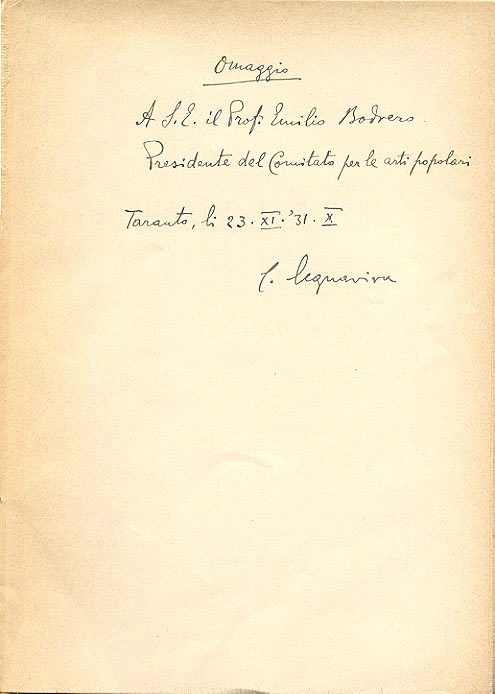 Omaggio
A S. E. il Prof. Emilio Bodrero.
Presidente del Comitato per le arti popolari
Taranto, lì 23. XI. '31. X
C. Acquaviva